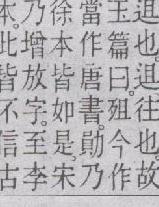 也
往也故
玉篇曰。殂今作
當作唐書。勛乃
徐本皆如是。宋
乃增放字。至李
本。此皆不信古